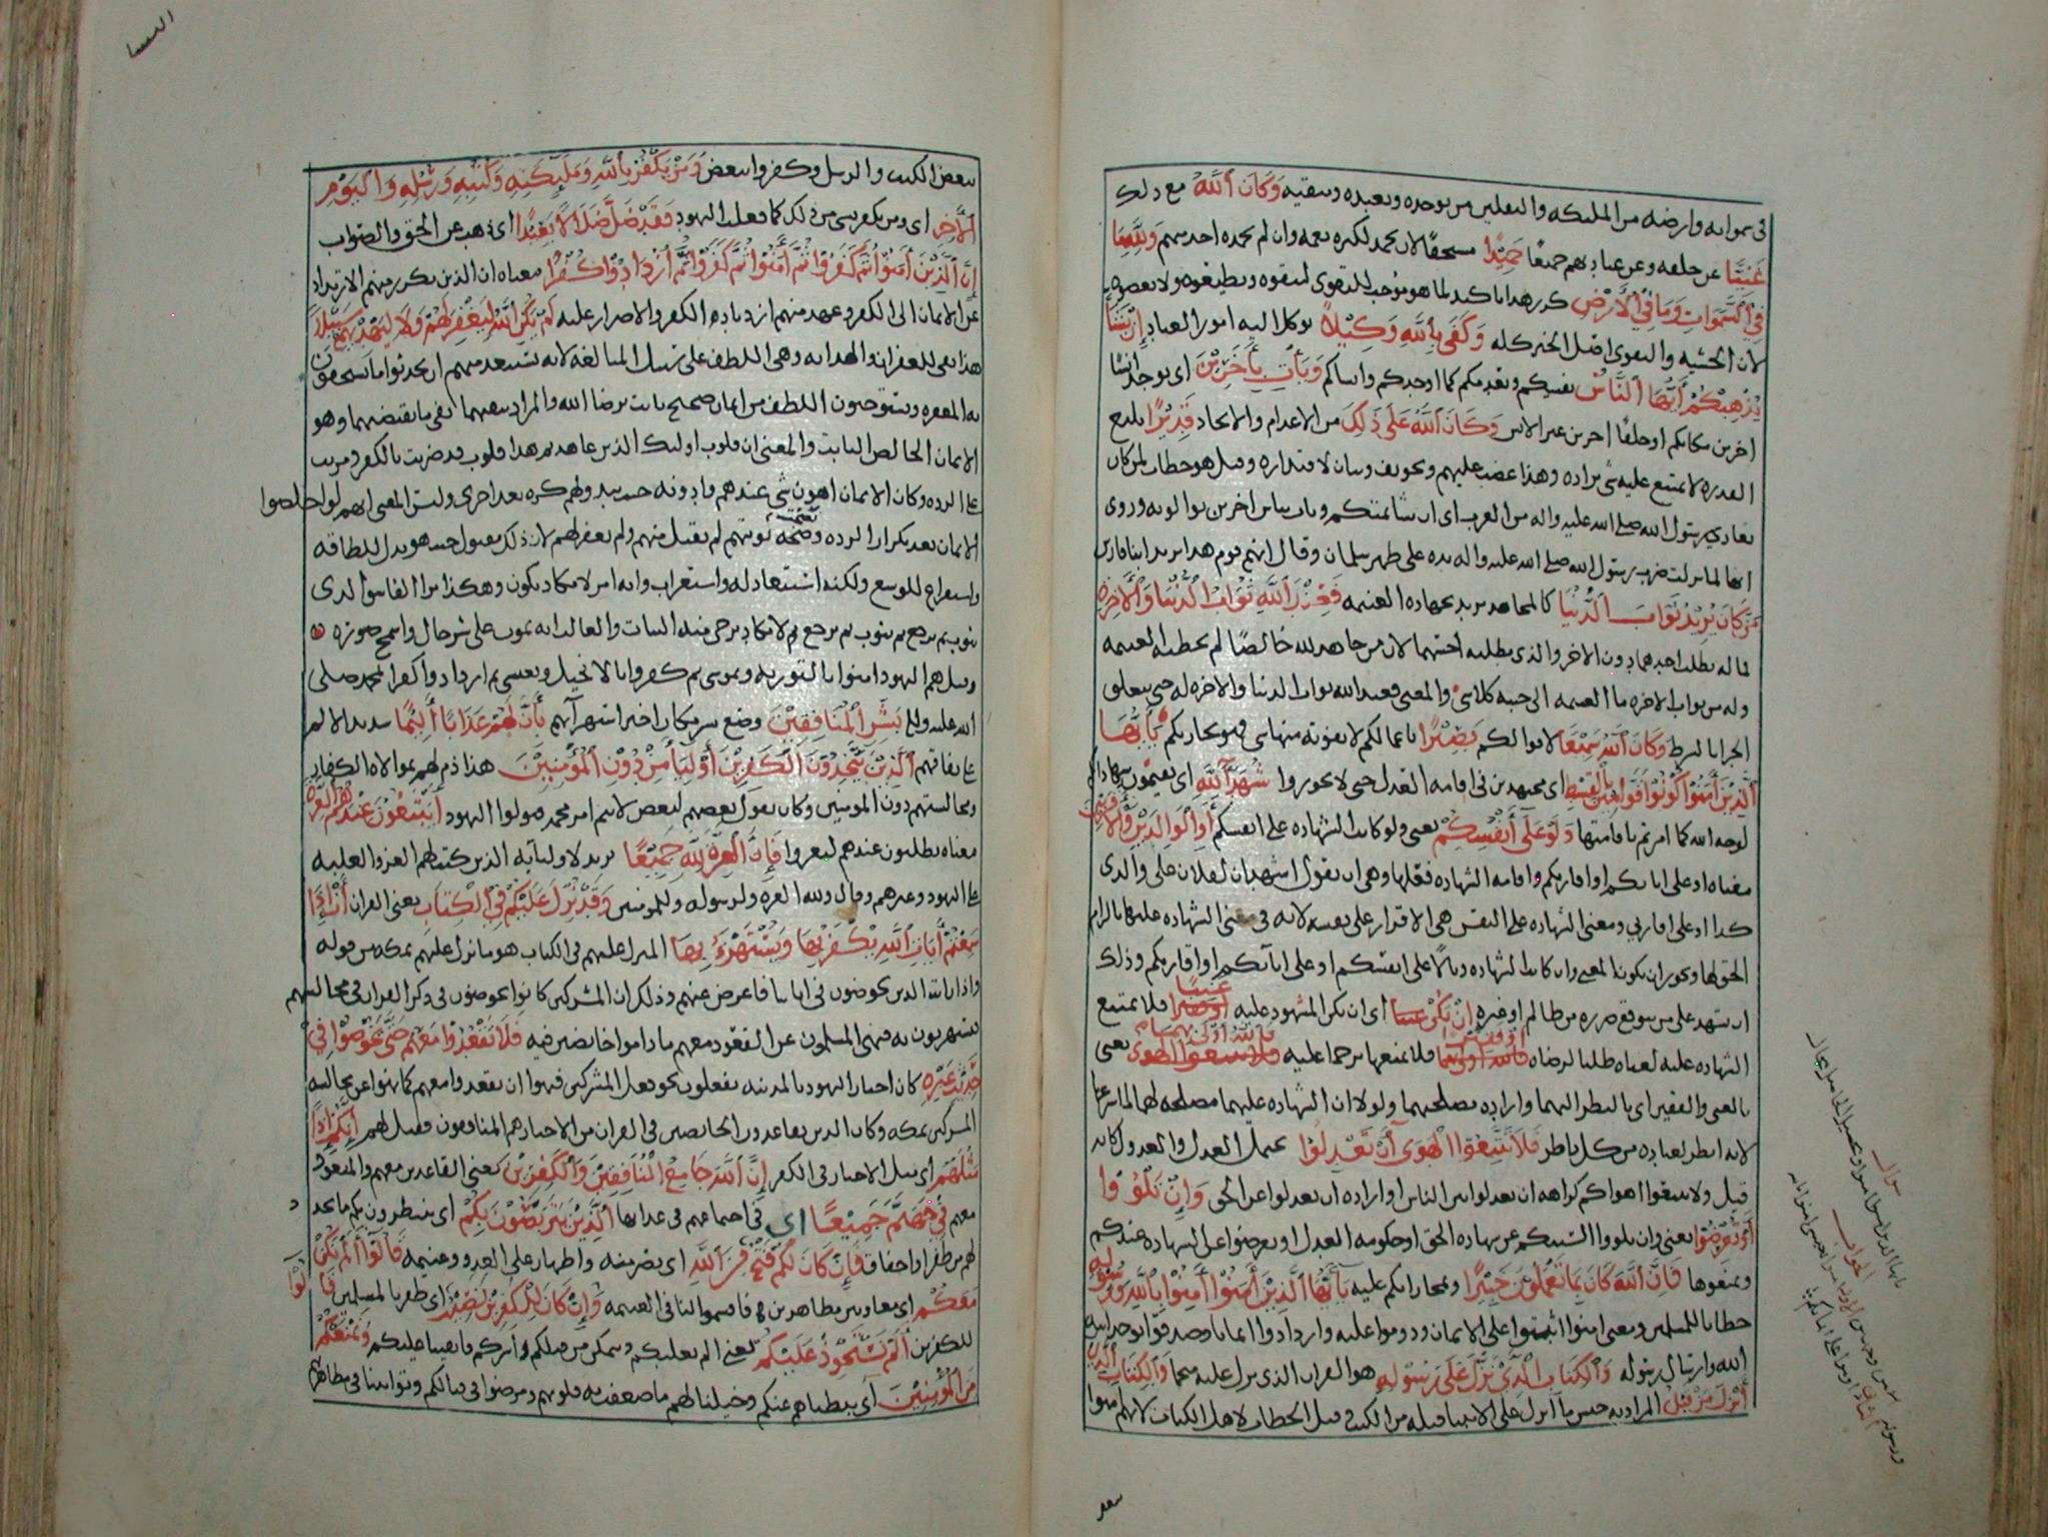 في سمواته وارضه من الملئكه والثقلين من يوحده ويعبده ويتقيه وَكَانَ اللَّهُ مع ذلك
غَنِيًّا عن خلقه وعن عبادتهم جميعًا حَمِيدًا مستحقا لان يحمد لكثره نعمه وان لم يحمده احد منهم وَلِلَّهِ مَا
فِي السَّمَوَاتِ وَمَا فِي الْأَرْضِ كرر هذا تاكيد لما هو موجب للتقوى ليتقوه ويطيعوه ولا يعصوه
لان الخشيه والتقوى اصل الخير كله وَكَفَى بِاللَّهِ وَكِيلًا توكل اليه امور العباد إِنْ يَشَأْ
يُذْهِبْكُمْ أَيُّهَا النَّاسُ يفنيكم ويعدمكم كما اوجدكم وانشاكم وَيَأْتِ بِآخَرِينَ اى يوجد انسا
اخرين مكانكم او خلقا اخرين غير الانس وَكَانَ اللَّهُ عَلَى ذَلِكَ من الاعدام والايجاد قَدِيرًا بليغ
القدره لا يمتنع عليه شى اراده وهذا غضب عليهم وتخويف وبيان لاقتداره وقيل هو خطاب لمن كان
يعادي رسول الله صلى الله عليه واله من العرب اى ان يشا يمتكم ويات بناس اخرين يوالونه وروى
انها لما نزلت ضرب رسول الله صلى الله عليه واله يده على ظهر سلمان وقال انهم قوم هذا يريد ابنا فارس
مَنْ كَانَ يُرِيدُ ثَوَابَ الدُّنْيَا كالمجاهد يريد بجهاده الغنيمه فَعِنْدَ اللَّهِ ثَوَابُ الدُّنْيَا وَالْآخِرَةِ
فما له يطلب احدهما دون الاخر والذى يطلبه اخسهما لان من جاهد لله خالصًا لم تخطئه الغنيمه
وله من ثواب الاخره ما الغنيمه الى جنبه كلا شى والمعنى فعند الله ثواب الدنيا والاخره له حتى يتعلق
الجزا بالشرط وَكَانَ اللَّهُ سَمِيعًا لاقوالكم بَصِيرًا باعمالكم لا يفوته منها شى فهو يجازيكم يَا أَيُّهَا
الَّذِينَ آمَنُوا كُونُوا قَوَّامِينَ بِالْقِسْطِ اى مجتهدين فى اقامه العدل حتى لا تجوروا شُهَدَاءَ لِلَّهِ اى تقيمون شهاداتكم
لوجه الله كما امرتم باقامتها وَلَوْ عَلَى أَنْفُسِكُمْ يعنى ولو كانت الشهاده على انفسكم أَوِ الْوَالِدَيْنِ وَالْأَقْرَبِينَ
معناه او على ابائكم او اقاربكم واقامه الشهاده فعلها وهى ان يقول اشهد ان لفلان على والدى
كذا او على اقاربي ومعنى الشهاده على النفس هى الاقرار على نفسه لانه فى معنى الشهاده عليها بالزام
الحق لها ويجوز ان يكون المعنى وان كانت الشهاده وبالا على انفسكم او على ابائكم او اقاربكم وذلك
ان يشهد على من يتوقع ضرره من ظالم او غيره إِنْ يَكُنْ غَنِيًّا اى ان يكن المشهود عليه فلا يمتنع
الشهاده عليه لغناه طلبا لرضاه أَوْ فَقِيرًا فلا يمنعها ترحما عليه فَاللَّهُ أَوْلَى بِهِمَا يعنى
بالغنى والفقير اى بالنظر اليهما وارادة مصلحتهما ولولا ان الشهاده عليهما مصلحه لهما لما شرعها
لانه انظر لعباده من كل ناظر فَلَا تَتَّبِعُوا الْهَوَى أَنْ تَعْدِلُوا يحتمل العدل والعدول كانه
قيل ولا تتبعوا اهواكم كراهه ان تعدلوا بين الناس او اراده ان تعدلوا عن الحق وَإِنْ تَلْوُوا
أَوْ تُعْرِضُوا يعنى وان تلووا السنتكم عن شهاده الحق او حكومه العدل او تعرضوا عن الشهاده عندكم
وتمنعوها فَإِنَّ اللَّهَ كَانَ بِمَا تَعْمَلُونَ خَبِيرًا وبمجازاتكم عليه يَا أَيُّهَا الَّذِينَ آمَنُوا آمِنُوا بِاللَّهِ وَرَسُولِهِ
خطاب للمسلمين ومعنى امنوا اثبتوا على الايمان ودوموا عليه وازدادوا ايمانا وصدقوا بوحدانيه
الله وارسال رسوله وَالْكِتَابِ الَّذِي نَزَّلَ عَلَى رَسُولِهِ هو القران الذى نزل عليه منجما وَالْكِتَابِ الَّذِي
أَنْزَلَ مِنْ قَبْلُ المراد به جنس ما انزل على الانبيا قبله من الكتب وقيل الخطاب لاهل الكتاب لانهم امنوا
سوال
الجواب
النسا
ببعض الكتب والرسل وكفروا ببعض وَمَنْ يَكْفُرْ بِاللَّهِ وَمَلَئِكَتِهِ وَكُتُبِهِ وَرُسُلِهِ وَالْيَوْمِ
الْآخِرِ اى ومن يكفر بشى من ذلك كما فعلت اليهود فَقَدْ ضَلَّ ضَلَالًا بَعِيدًا اى ذهب عن الحق والصواب
إِنَّ الَّذِينَ آمَنُوا ثُمَّ كَفَرُوا ثُمَّ آمَنُوا ثُمَّ كَفَرُوا ثُمَّ ازْدَادُوا كُفْرًا معناه ان الذين تكرر منهم الارتداد
عن الايمان الى الكفر وعهد منهم ازدياد الكفر والاصرار عليه لَمْ يَكُنِ اللَّهُ لِيَغْفِرَ لَهُمْ وَلَا لِيَهْدِيَهُمْ سَبِيلًا
هذا نفى للغفران والهدايه وهى اللطف على سبيل المبالغه لانه يستبعد منهم ان يحدثوا ما يستحقون
به المغفره ويستوجبون اللطف من ايمان صحيح ثابت برضا الله والمراد بنفيهما نفى ما يقتضيهما وهو
الايمان الخالص الثابت والمعنى ان قلوب اوليك الذين عاهدتم هذا قلوب قد ضربت بالكفر ومرنت
على الرده وكان الايمان اهون شى عندهم وادونه حيث يبدو لهم كره بعد اخرى وليس المعنى انهم لو اخلصوا
الايمان بعد تكرار الرده ونصحت توبتهم لم يقبل منهم ولم يغفر لهم لان ذلك مقبول حيث هو بذل للطاقه
واستفراغ للوسع ولكنه استبعاد له واستغراب وانه امر لا يكاد يكون وهكذا ترا الفاسق الذى
يتوب ثم يرجع ثم يتوب ثم يرجع ثم لا يكاد يرجى منه الثبات والغالب انه يموت على شر حال واسمج صوره
وقيل هم اليهود امنوا بالتوريه وبموسى ثم كفروا بالانجيل وبعيسى ثم ازدادوا كفرا بمحمد صلى
الله عليه واله بَشِّرِ الْمُنَافِقِينَ وضع بشر مكان اخبر استهزا بهم بِأَنَّ لَهُمْ عَذَابًا أَلِيمًا شديد الالم
على نفاقهم الَّذِينَ يَتَّخِذُونَ الْكَافِرِينَ أَوْلِيَاءَ مِنْ دُونِ الْمُؤْمِنِينَ هذا ذم لهم بموالاه الكفار
ومجالستهم دون المومنين وكان يقول بعضهم لبعض لا يتم امر محمد فتولوا اليهود أَيَبْتَغُونَ عِنْدَهُمُ الْعِزَّةَ
معناه يطلبون عندهم ليعزوا فَإِنَّ الْعِزَّةَ لِلَّهِ جَمِيعًا يريد لاوليايه الذين كتب لهم العز والغلبه
على اليهود وغيرهم وقال ولله العزه ولرسوله وللمومنين وَقَدْ نَزَّلَ عَلَيْكُمْ فِي الْكِتَابِ يعنى القران أَنْ إِذَا
سَمِعْتُمْ آيَاتِ اللَّهِ يُكْفَرُ بِهَا وَيُسْتَهْزَأُ بِهَا المنزل عليهم فى الكتاب هو ما نزل عليهم بمكه من قوله
واذا رايت الذين يخوضون فى اياتنا فاعرض عنهم وذلك ان المشركين كانوا يخوضون فى ذكر القران فى مجالسهم
فيستهزون به فنهى المسلمون عن القعود معهم ما داموا خايضين فيه فَلَا تَقْعُدُوا مَعَهُمْ حَتَّى يَخُوضُوا فِي
حَدِيثٍ غَيْرِهِ كان احبار اليهود بالمدينه يفعلون نحو فعل المشركين فنهوا ان يقعدوا معهم كما نهوا عن مجالسه
المشركين بمكه وكان الذين يقاعدون الخايضين فى القران من الاحبار هم المنافقون فقيل لهم إِنَّكُمْ إِذًا
مِثْلُهُمْ اى مثل الاحبار فى الكفر إِنَّ اللَّهَ جَامِعُ الْمُنَافِقِينَ وَالْكَافِرِينَ يعنى القاعدين معهم والمقعود
معهم فِي جَهَنَّمَ جَمِيعًا اى فى اجتماعهم فى عذابها الَّذِينَ يَتَرَبَّصُونَ بِكُمْ اى ينتظرون بكم ما يتجدد
لهم من ظفر او اخفاق فَإِنْ كَانَ لَكُمْ فَتْحٌ مِنَ اللَّهِ اى نصر منه واظهار على العدو وغنيمه قَالُوا أَلَمْ نَكُنْ
مَعَكُمْ اى معاونين مظاهرين فاقسموا لنا فى الغنيمه وَإِنْ كَانَ لِلْكَافِرِينَ نَصِيبٌ اى ظفر بالمسلمين قَالُوا
للكفرين أَلَمْ نَسْتَحْوِذْ عَلَيْكُمْ يعنى الم نغلبكم ونتمكن من قتلكم واسركم فابقينا عليكم وَنَمْنَعْكُمْ
مِنَ الْمُؤْمِنِينَ اى بتثبيطناهم عنكم وخيلنا لهم ما ضعفت به قلوبهم ومرضوا فى قتالكم وتوانينا فى مظاهرتهم